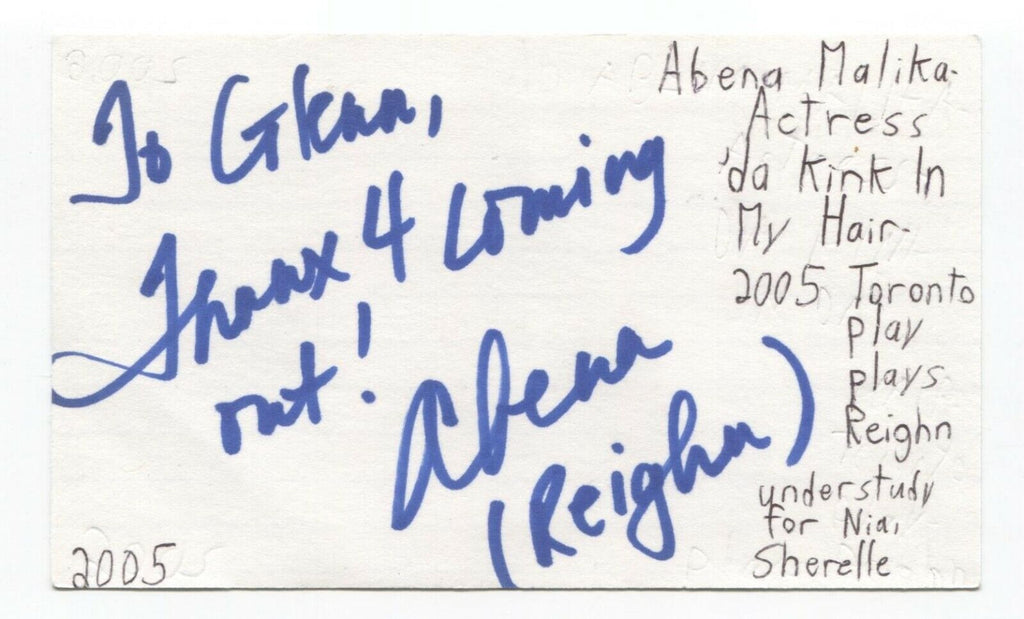 To Glenn,
Thanx 4 coming
out!
Abena
(Reighn)
2005
Abena Malika-
Actress
'da Kink In
My Hair-
2005 Toronto
play
plays
Reighn
understudy
for Nia,
Sherelle